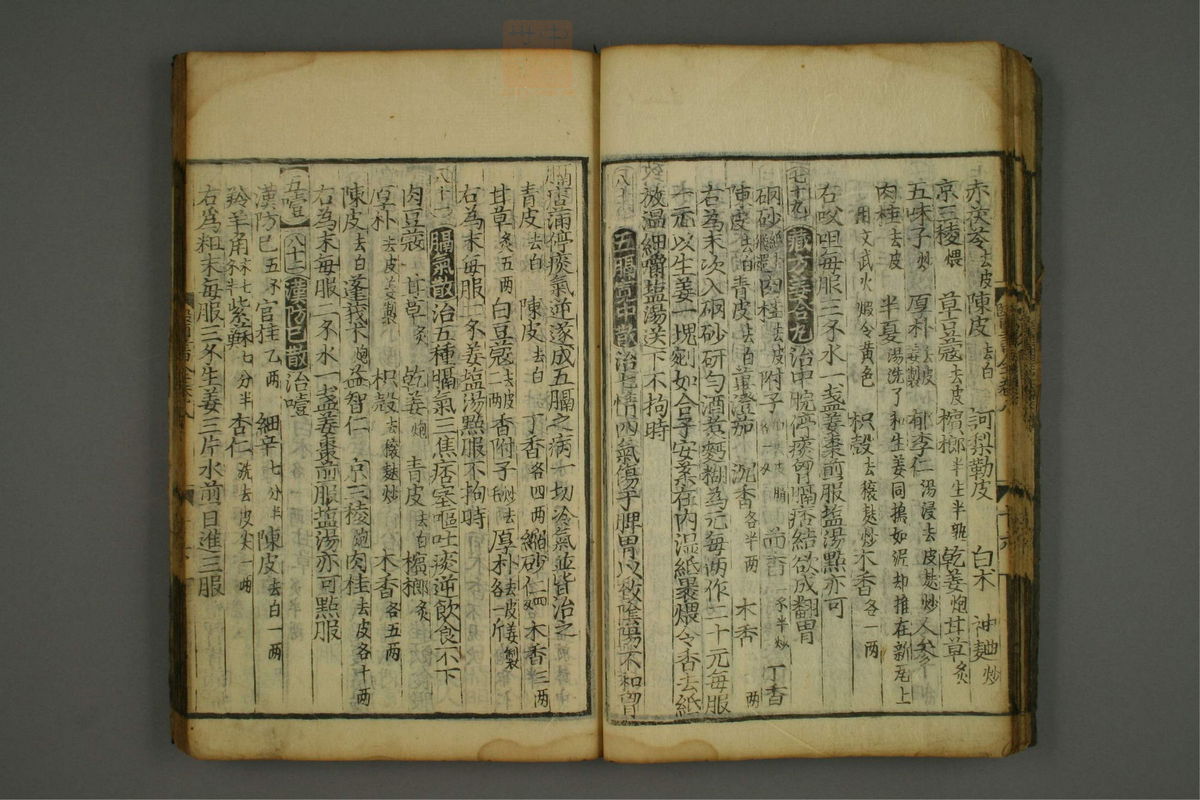 赤茯苓去皮 陳皮去白 訶梨勒皮 白术 神麯炒
京三稜煨 草豆蔻去皮 檳榔半生半熟 乾姜炮 甘草炙
五味子炒 厚朴去皮姜製 郁李仁湯浸去皮麩炒 人參
肉桂去皮 半夏湯洗了和生姜同搗如泥却推在新瓦上
用文武火煆令黃色 枳殼去穰麩炒 木香各一两
右㕮咀每服三錢水一盞姜棗煎服塩湯點亦可
七十九 藏方姜合丸 治中脘停痰胷膈痞結欲成翻胃
硇砂 肉桂去皮 附子 茴香 丁香
陳皮去白 青皮去白 蓽澄茄 沉香各半两 木香 两
右為末次入硇砂研匀酒煮麪糊為元每两作二十元每服
一元以生姜一塊剜如合子安藥在內湿紙裹煨令香去紙
放温細嚼塩湯送下不拘時
八十 五膈寬中散 治七情四氣傷于脾胃以致陰陽不和胷
膈否滿停痰氣逆遂成五膈之病一切冷氣並皆治之
青皮去白 陳皮去白 丁香各四两 縮砂 木香三两
甘草炙五两 白豆蔻去皮二两 香附子炒去毛 厚朴去皮姜製各一斤
右為末每服二錢姜塩湯點服不拘時
八十一 膈氣散 治五種膈氣三焦痞塞嘔吐痰逆飲食不下
肉豆蔻 甘草炙 乾姜炮 青皮去白 檳榔炙
厚朴去皮姜製 枳殼去穰麩炒 木香各五两
陳皮去白 蓬莪朮炮 益智仁 京三稜炮 肉桂去皮各十两
右為末每服二錢水一盞姜棗煎服塩湯亦可點服
五噎 八十二 漢防已散 治噎
漢防已五錢 官桂乙两 細辛七分半 陳皮去白一两
羚羊角 紫蘇七分半 杏仁洗去皮尖一两
右為粗末每服三錢生姜三片水煎日進三服